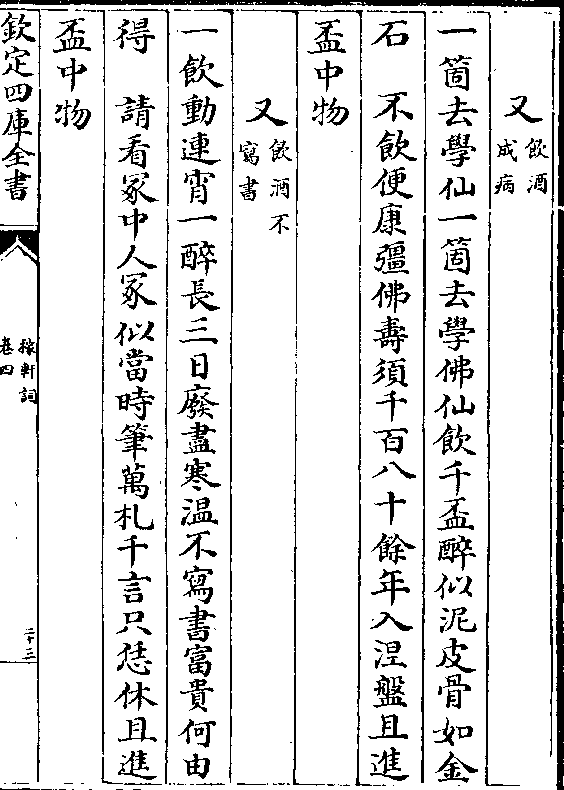 又飲酒成病
一箇去學仙一箇去學佛仙飲千盃醉似泥皮骨如金
石　不飲便康彊佛壽須千百八十餘年入涅盤且進
盃中物
又飲酒不寫書
一飲動連宵一醉長三日廢盡寒温不寫書富貴何由
得　請看冢中人冢似當時筆萬札千言只恁休且進
盃中物
欽定四庫全書
稼軒詞
卷四
二十三